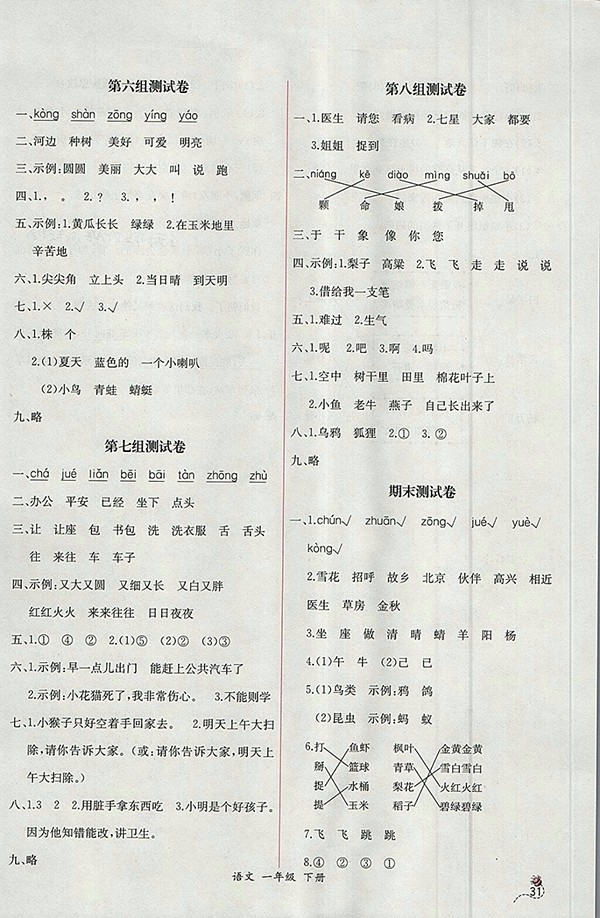 第六组测试卷
一、kòng shàn zōng yíng yáo
二、河边 种树 美好 可爱 明亮
三、示例:圆圆 美丽 大大 叫 说 跑
四、1., 。 2.? 3., , !
五、示例:1.黄瓜长长 绿绿 2.在玉米地里
辛苦地
六、1.尖尖角 立上头 2.当日晴 到天明
七、1.× 2.√ 3.√
八、1.株 个
2.(1)夏天 蓝色的 一个小喇叭
(2)小鸟 青蛙 蜻蜓
九、略
第七组测试卷
一、chá jué liǎn bēi bāi tàn zhōng zhù
二、办公 平安 已经 坐下 点头
三、让 让座 包 书包 洗 洗衣服 舌 舌头
往 来往 车 车子
四、示例:又大又圆 又细又长 又白又胖
红红火火 大大小小 日日夜夜
五、1.① ④ ② 2.(1)⑤ (2)③ (3)③
六、1.示例:早一点儿出门 能赶上公共汽车了
2.示例:小花猫死了,我非常伤心。 3.不能则学
七、1.小猴子只好空着手回家去。 2.明天上午大扫
除,请你告诉大家。(或:请你告诉大家,明天上
午大扫除。)
八、1.3 2 2.用脏手拿东西吃 3.小明是个好孩子。
因为他知错能改,讲卫生。
九、略
第八组测试卷
一、1.医生 请您 看病 2.七星 大家 都要
3.姐姐 捉到
二、niáng kē diào mìng shuǎi bō
颗 命 娘 拨 掉 甩
三、于 干 象 像 你 您
四、示例:1.梨子 高粱 2.飞 飞 走 走 说 说
3.借给我一支笔
五、1.难过 2.生气
六、1.呢 2.吧 3.啊 4.吗
七、1.空中 树干里 田里 棉花叶子上
2.小鱼 老牛 燕子 自己长出来了
八、1.乌鸦 狐狸 2.① 3.②
九、略
期末测试卷
一、1.chún√ zhuān√ zōng√ jué√ yuè√
kòng√
2.雪花 招呼 故乡 北京 伙伴 高兴 相近
医生 草房 金秋
3.坐 座 做 清 晴 蜻 羊 阳 杨
4.(1)午 牛 (2)己 已
5.(1)鸟类 示例:鸦 鸽
(2)昆虫 示例:蚂 蚁
6.打 鱼虾 枫叶 金黄金黄
掰 篮球 青草 雪白雪白
捉 水桶 梨花 火红火红
提 玉米 稻子 碧绿碧绿
7.飞 飞 跳 跳
8.④ ② ③ ①
语文 一年级 下册
31